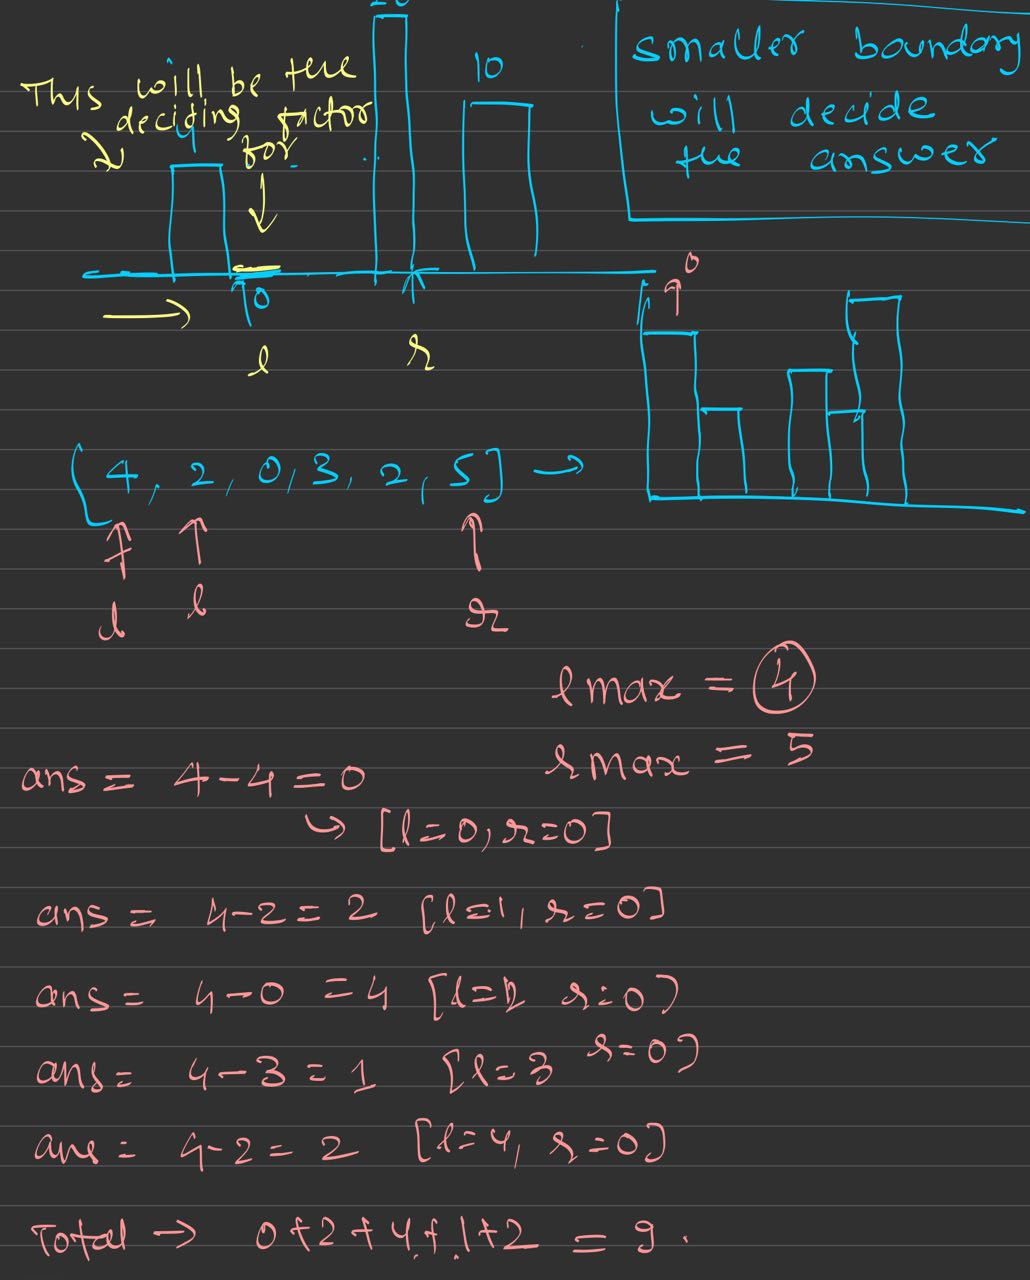 This will be the
deciding factor
for
4
10
smaller boundary
will decide
the answer
0
l
r
0
[4, 2, 0, 3, 2, 5] →
l
l
r
lmax = 4
rmax = 5
ans = 4-4=0
↳ [l=0, r=0]
ans = 4-2= 2 [l=1, r=0]
ans = 4-0 =4 [l=2 r=0]
ans= 4-3 = 1 [l=3 r=0]
ans = 4-2= 2 [l=4, r=0]
Total → 0+2+4+1+2 = 9.